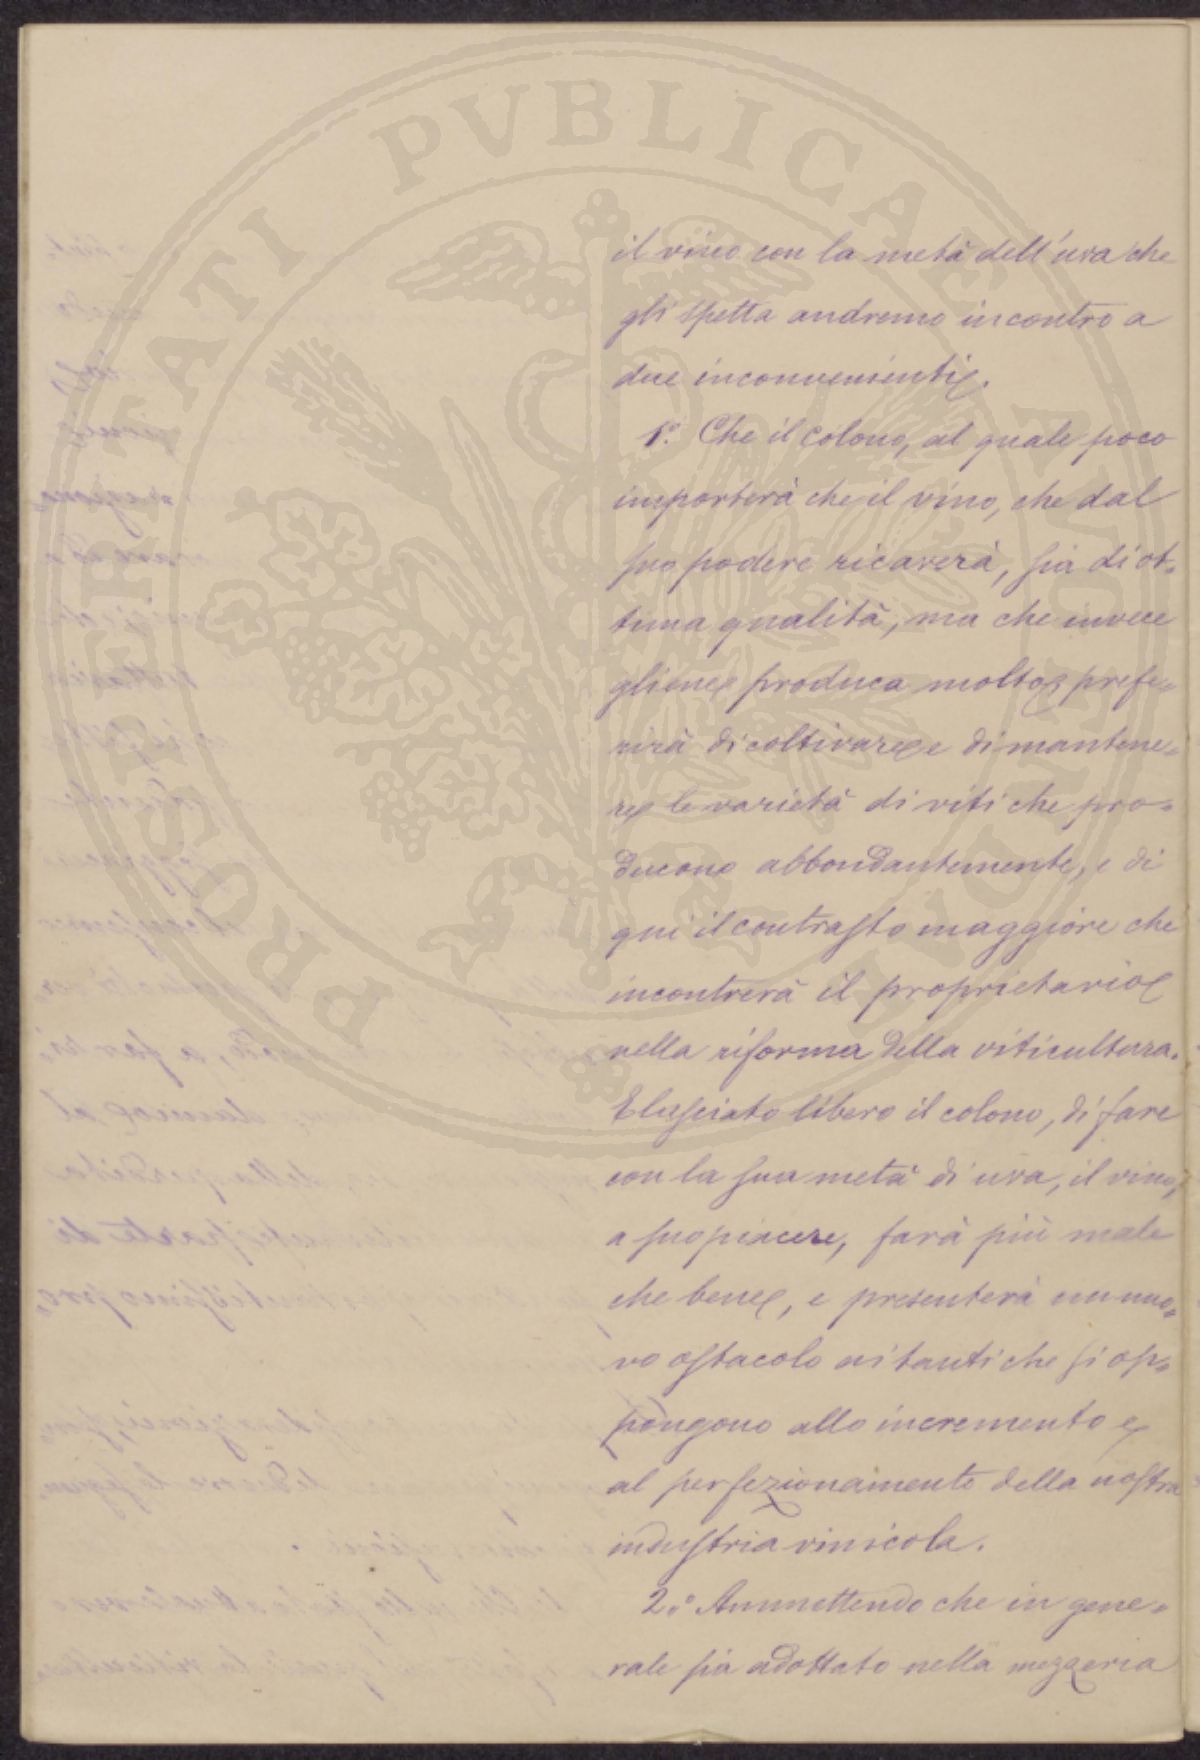 PROSPERITATI PVBLICAE AVGENDAE
il vino con la metà dell'uva che
gli spetta andremo incontro a
due inconvenienti.
1.° Che il colono, al quale poco
importerà che il vino, che dal
suo podere ricaverà, sia di ot=
tima qualità, ma che invece
gliene produca molto, prefe=
rirà di coltivare e di mantene=
re le varietà di viti che pro=
ducono abbondantemente, e di
qui il contrasto maggiore che
incontrerà il proprietario
nella riforma della viticultura.
E lasciato libero il colono, di fare
con la sua metà di uva, il vino,
a suo piacere, farà più male
che bene, e presenterà un nuo=
vo ostacolo ai tanti che si op=
pongono allo incremento e
al perfezionamento della nostra
industria vinicola.
2.° Ammettendo che in gene=
rale sia adottato nella mezzeria